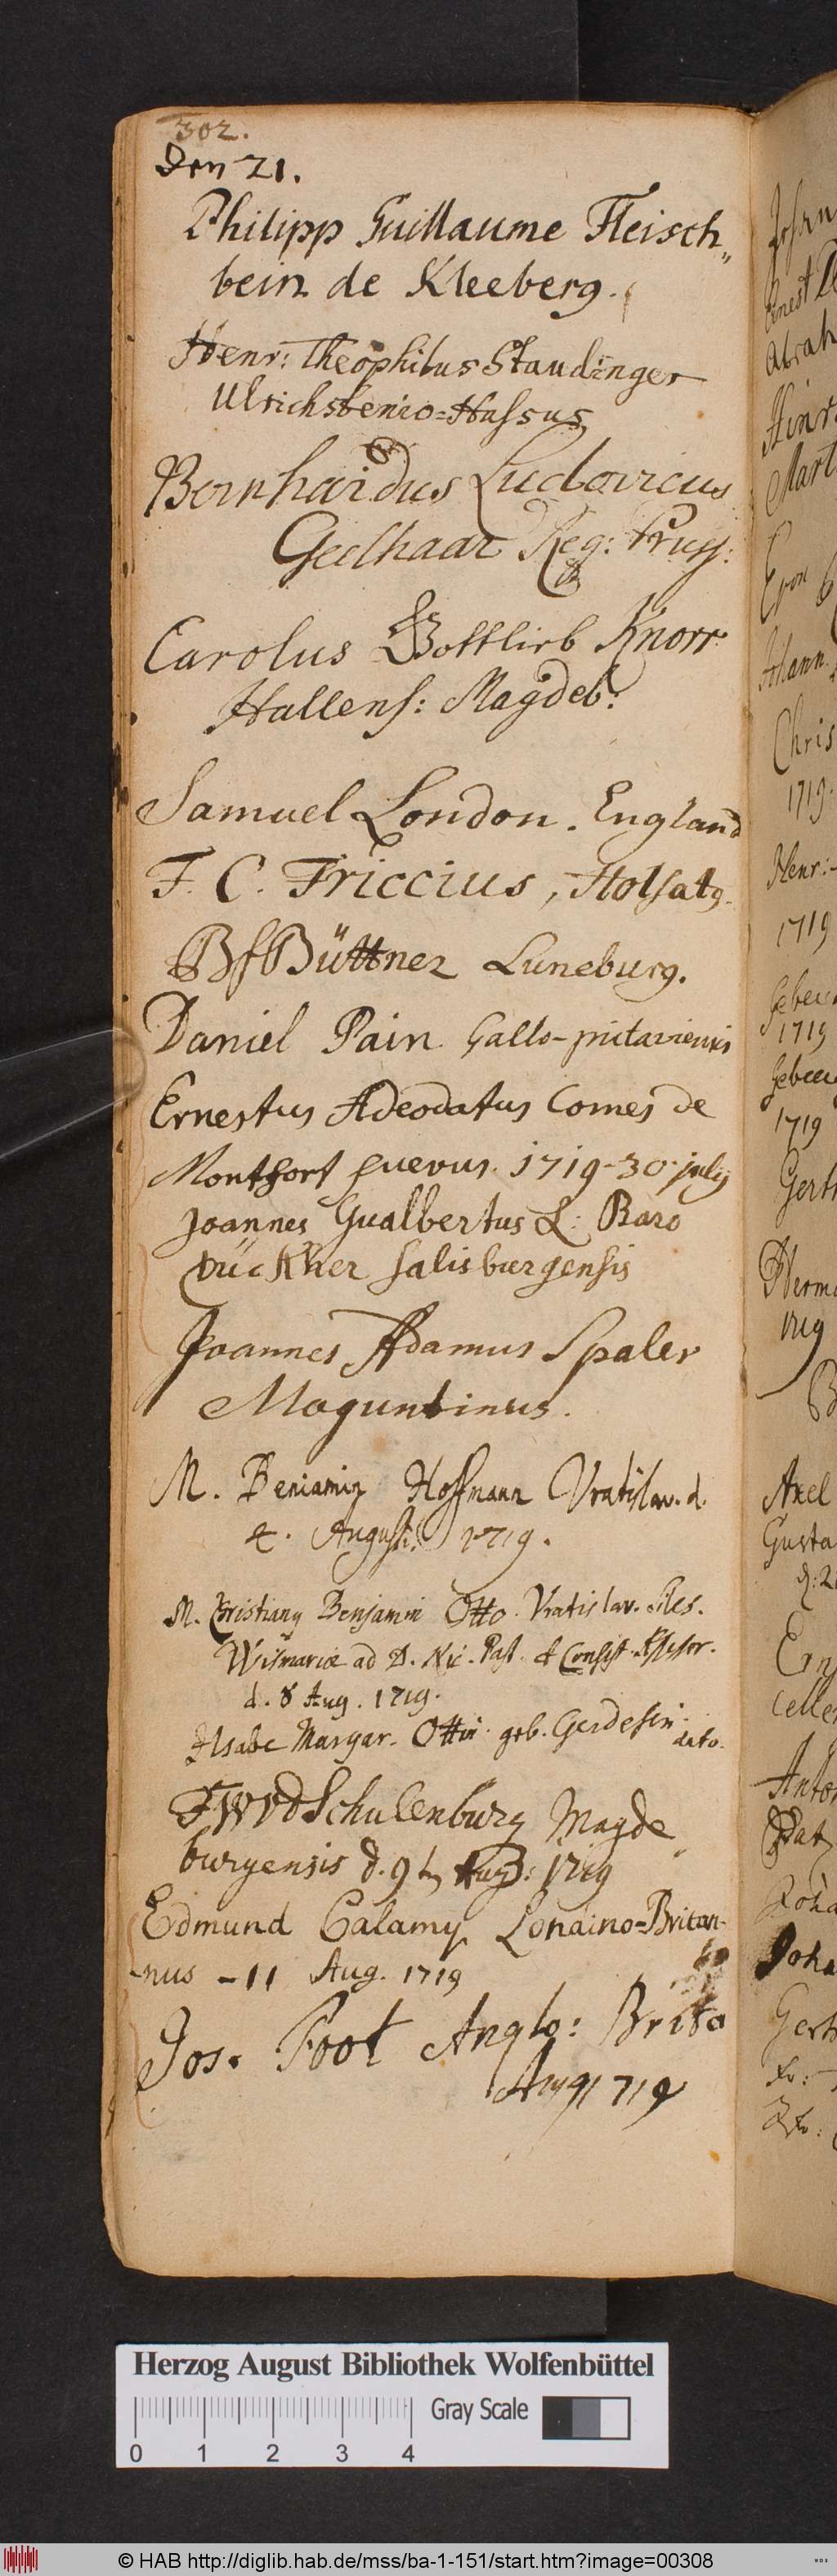 302.
Den 21.
Philipp Guillaume Fleisch„
bein de Kleeberg.
Henr: Theophilus Staudinger
Ulrichstenio=Hassus
Bernhardus Ludovicus
Geelhaar Reg: Pruss:
Carolus Gottlieb Knorr
Hallens: Magdeb:
Samuel London. England
F. C. Friccius, Holsatg.
Büttner Luneburg.
Daniel Pain Gallo-pictaviensis
Ernestus Adeodatus Comes de
Montfort suevus. 1719-30 july
Joannes Gualbertus L: Baro
Dückher salisburgensis
Joannes Adamus Spaler
Moguntinus.
M. Beniamin Hoffmann Vratislav. d.
4. Augusti 1719.
M. Christiang Benjamin Otto. Vratislav. Siles.
Wismariæ ad D. Nic. Past. et Consist. Assessor.
d. 8 Aug. 1719.
Ilsabe Margar. Ottin geb. Gerdesin dato.
FWVdSchulenburg Magde
burgensis d. 9t Aug: 1719
Edmund Calamy Londino=Britan-
-nus - 11 Aug. 1719
Jos. Foot Anglo: Brita
Aug 1719
Johan
Ernest
Abrah
Hinr
Mart
Johann
Chris
1719.
Henr:
1719
1719
1719
Gert
Herm
1719
Axel
Gusta
Ern
Celle
Anton
Joha
Joha
Gert
Herzog August Bibliothek Wolfenbüttel
Gray Scale
0 1 2 3 4
© HAB http://diglib.hab.de/mss/ba-1-151/start.htm?image=00308